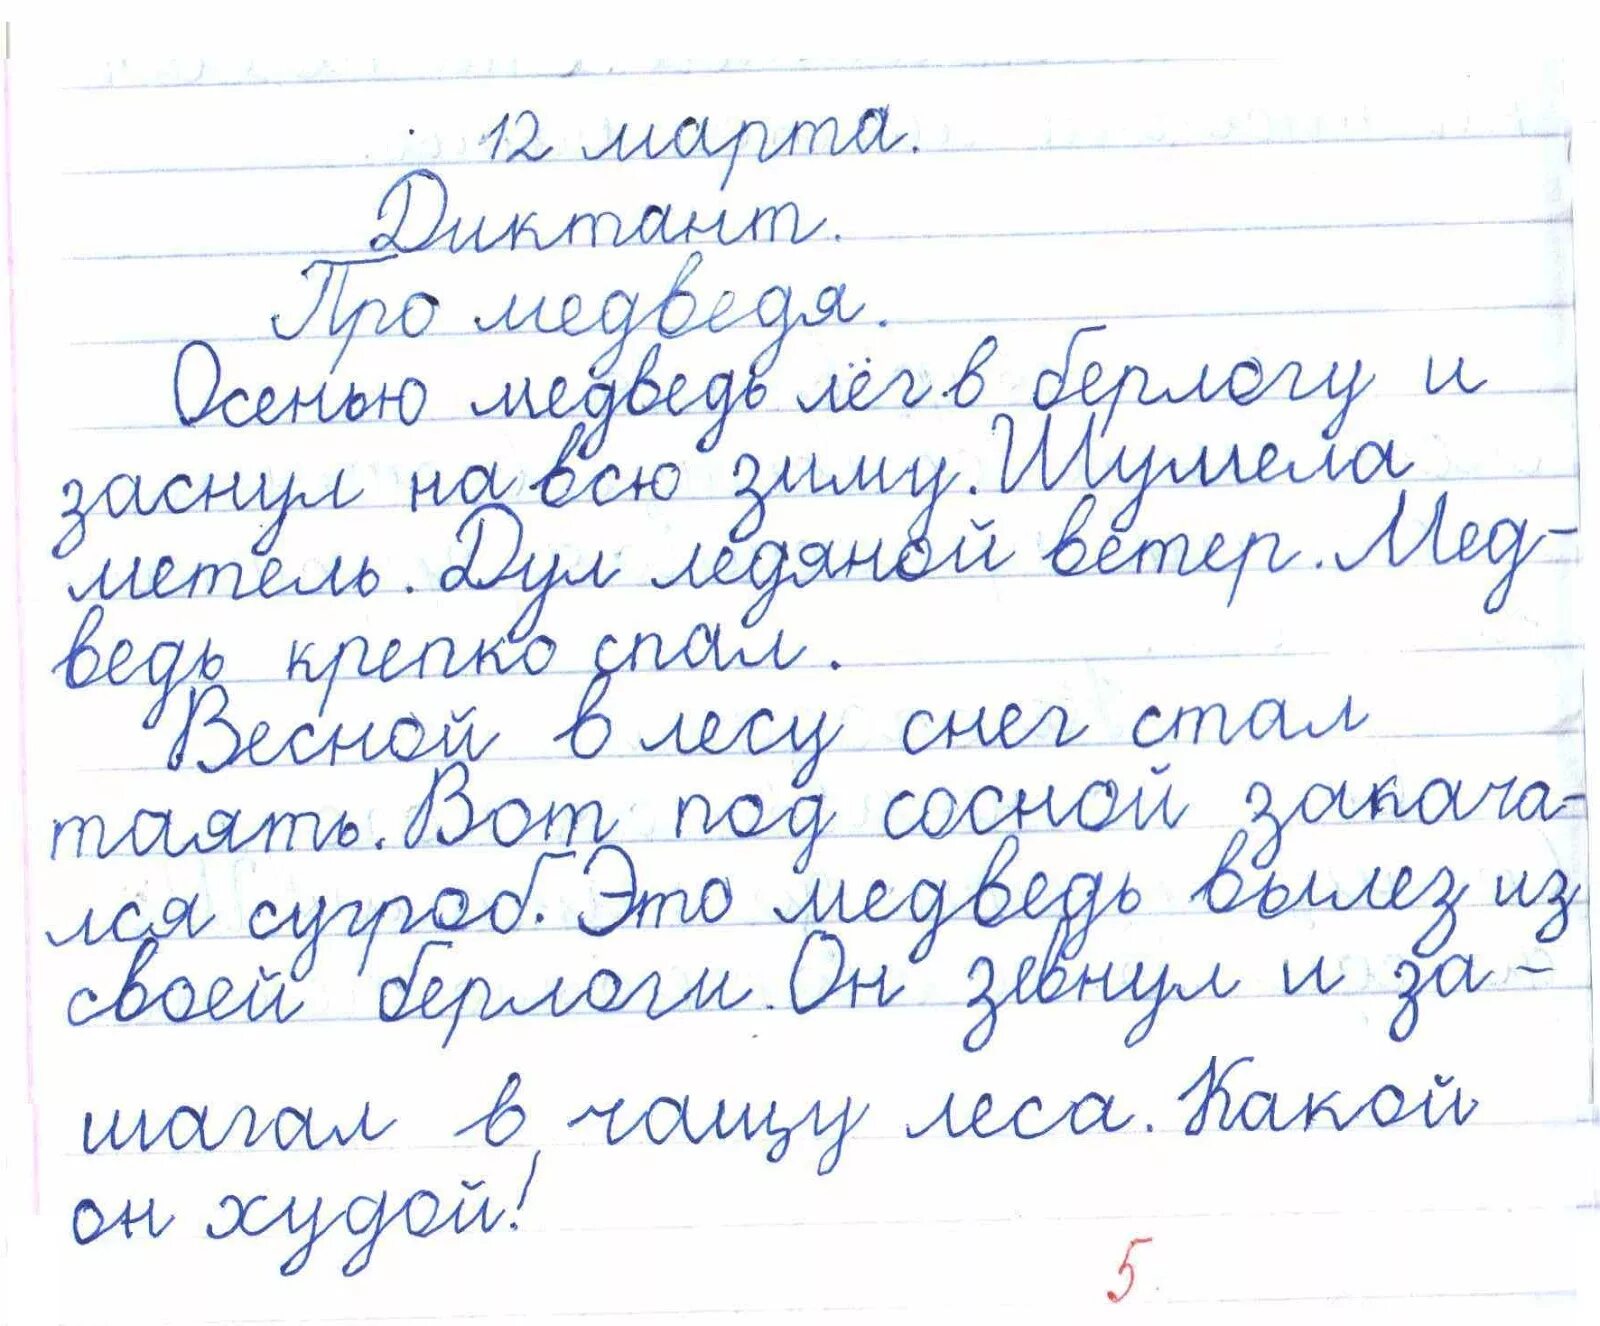 12 марта.
Диктант.
Про медведя.
Осенью медведь лёг в берлогу и
заснул на всю зиму. Шумела
метель. Дул ледяной ветер. Мед-
ведь крепко спал.
Весной в лесу снег стал
таять. Вот под сосной закача-
лся сугроб. Это медведь вылез из
своей берлоги. Он зевнул и за-
шагал в чащу леса. Какой
он худой!
5